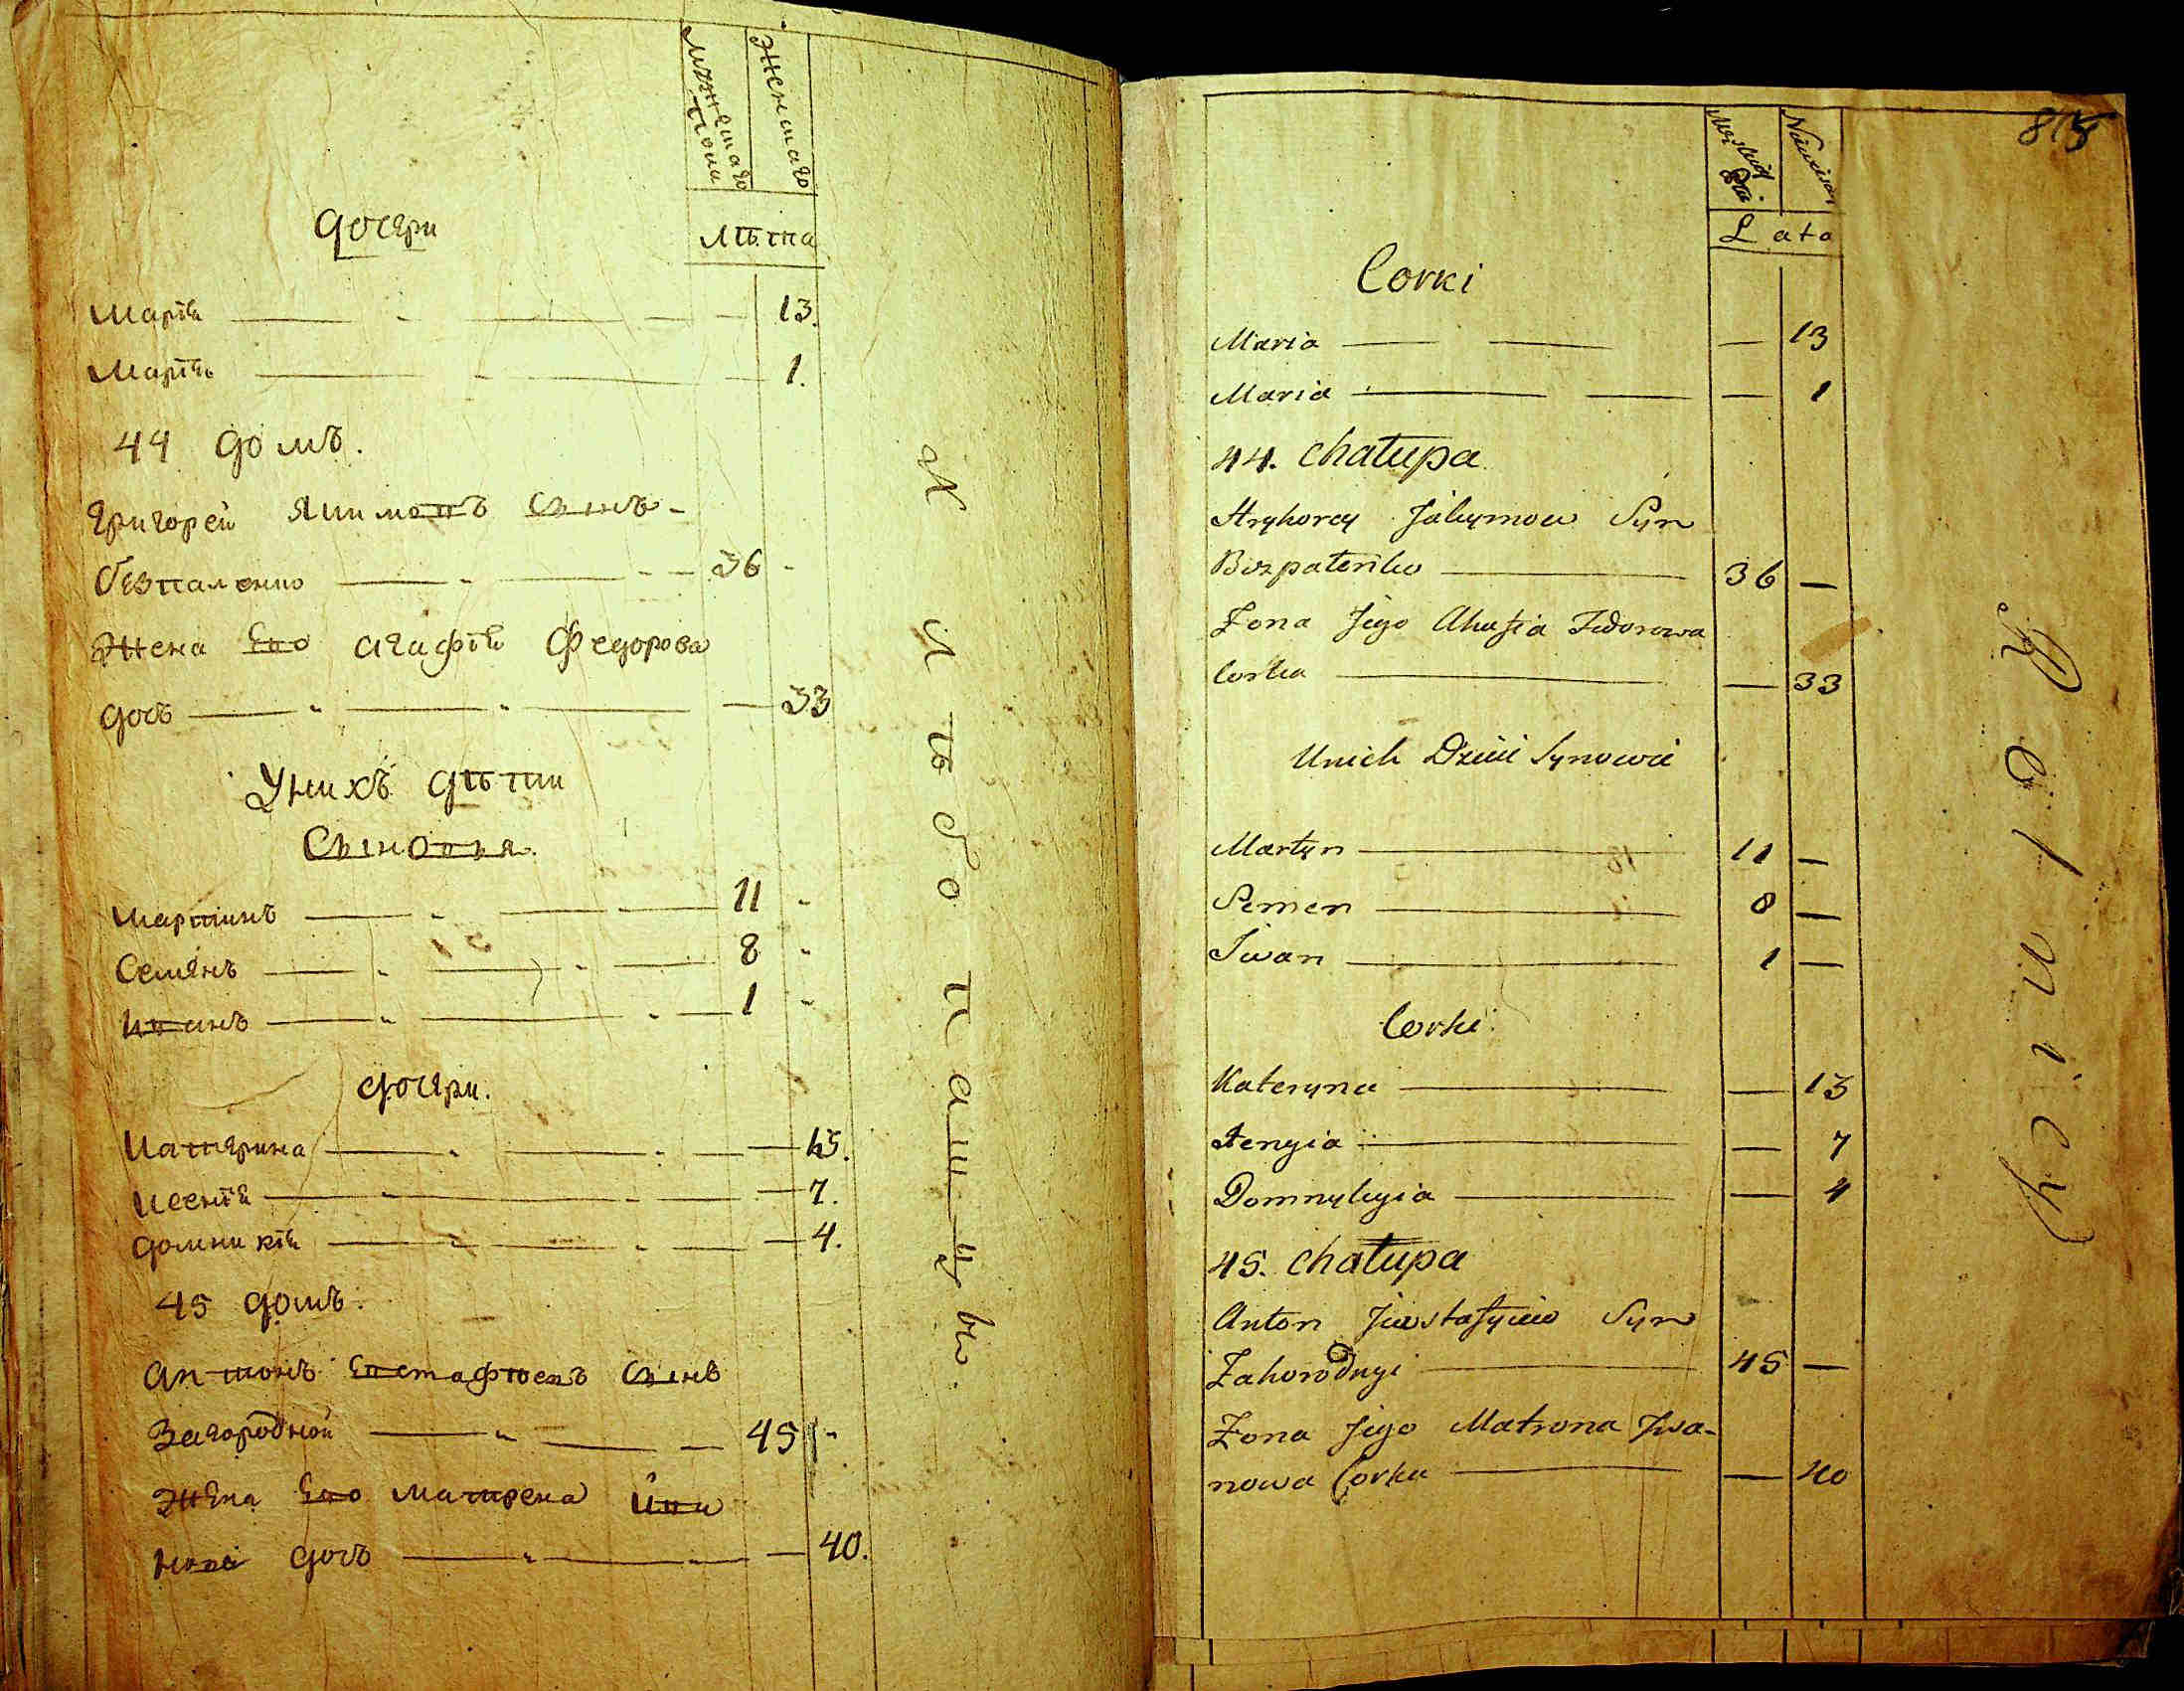 Мужеска пола
Женска
Лѣта
дочери
Марія 13.
Марія 1.
44 домъ.
Григорей Якимовъ Сынъ
безпаленко 36
Жена Его Агафія Федорова
дочь 33
У нихъ дѣти
Сыновья.
Мартинъ 11
Семенъ 8
Иванъ 1
дочери.
Катерина 15.
Ксенія 7.
Домникія 4.
45 домъ.
Антонъ Евстафіевъ Сынъ
Загородной 45
Жена Его Матрена Ива
нова дочь 40.
Хлѣбопашцы.
815
Lata
Corki
Maria 13
Maria 1
44. chałupa
Hryhorey Jakymow Syn
Bezpalenko 36
Żona Jego Ahafia Fedorowa
Corka 33
U nich Dzieci Synowie
Martyn 11
Semen 8
Iwan 1
Corki
Kateryna 13
Xenyia 7
Domnykyia 4
45. chałupa
Anton Jewstafyiew Syn
Zahorodnyi 45
Żona Jego Matrona Iwa-
nowa Corka 40
Rolnicy